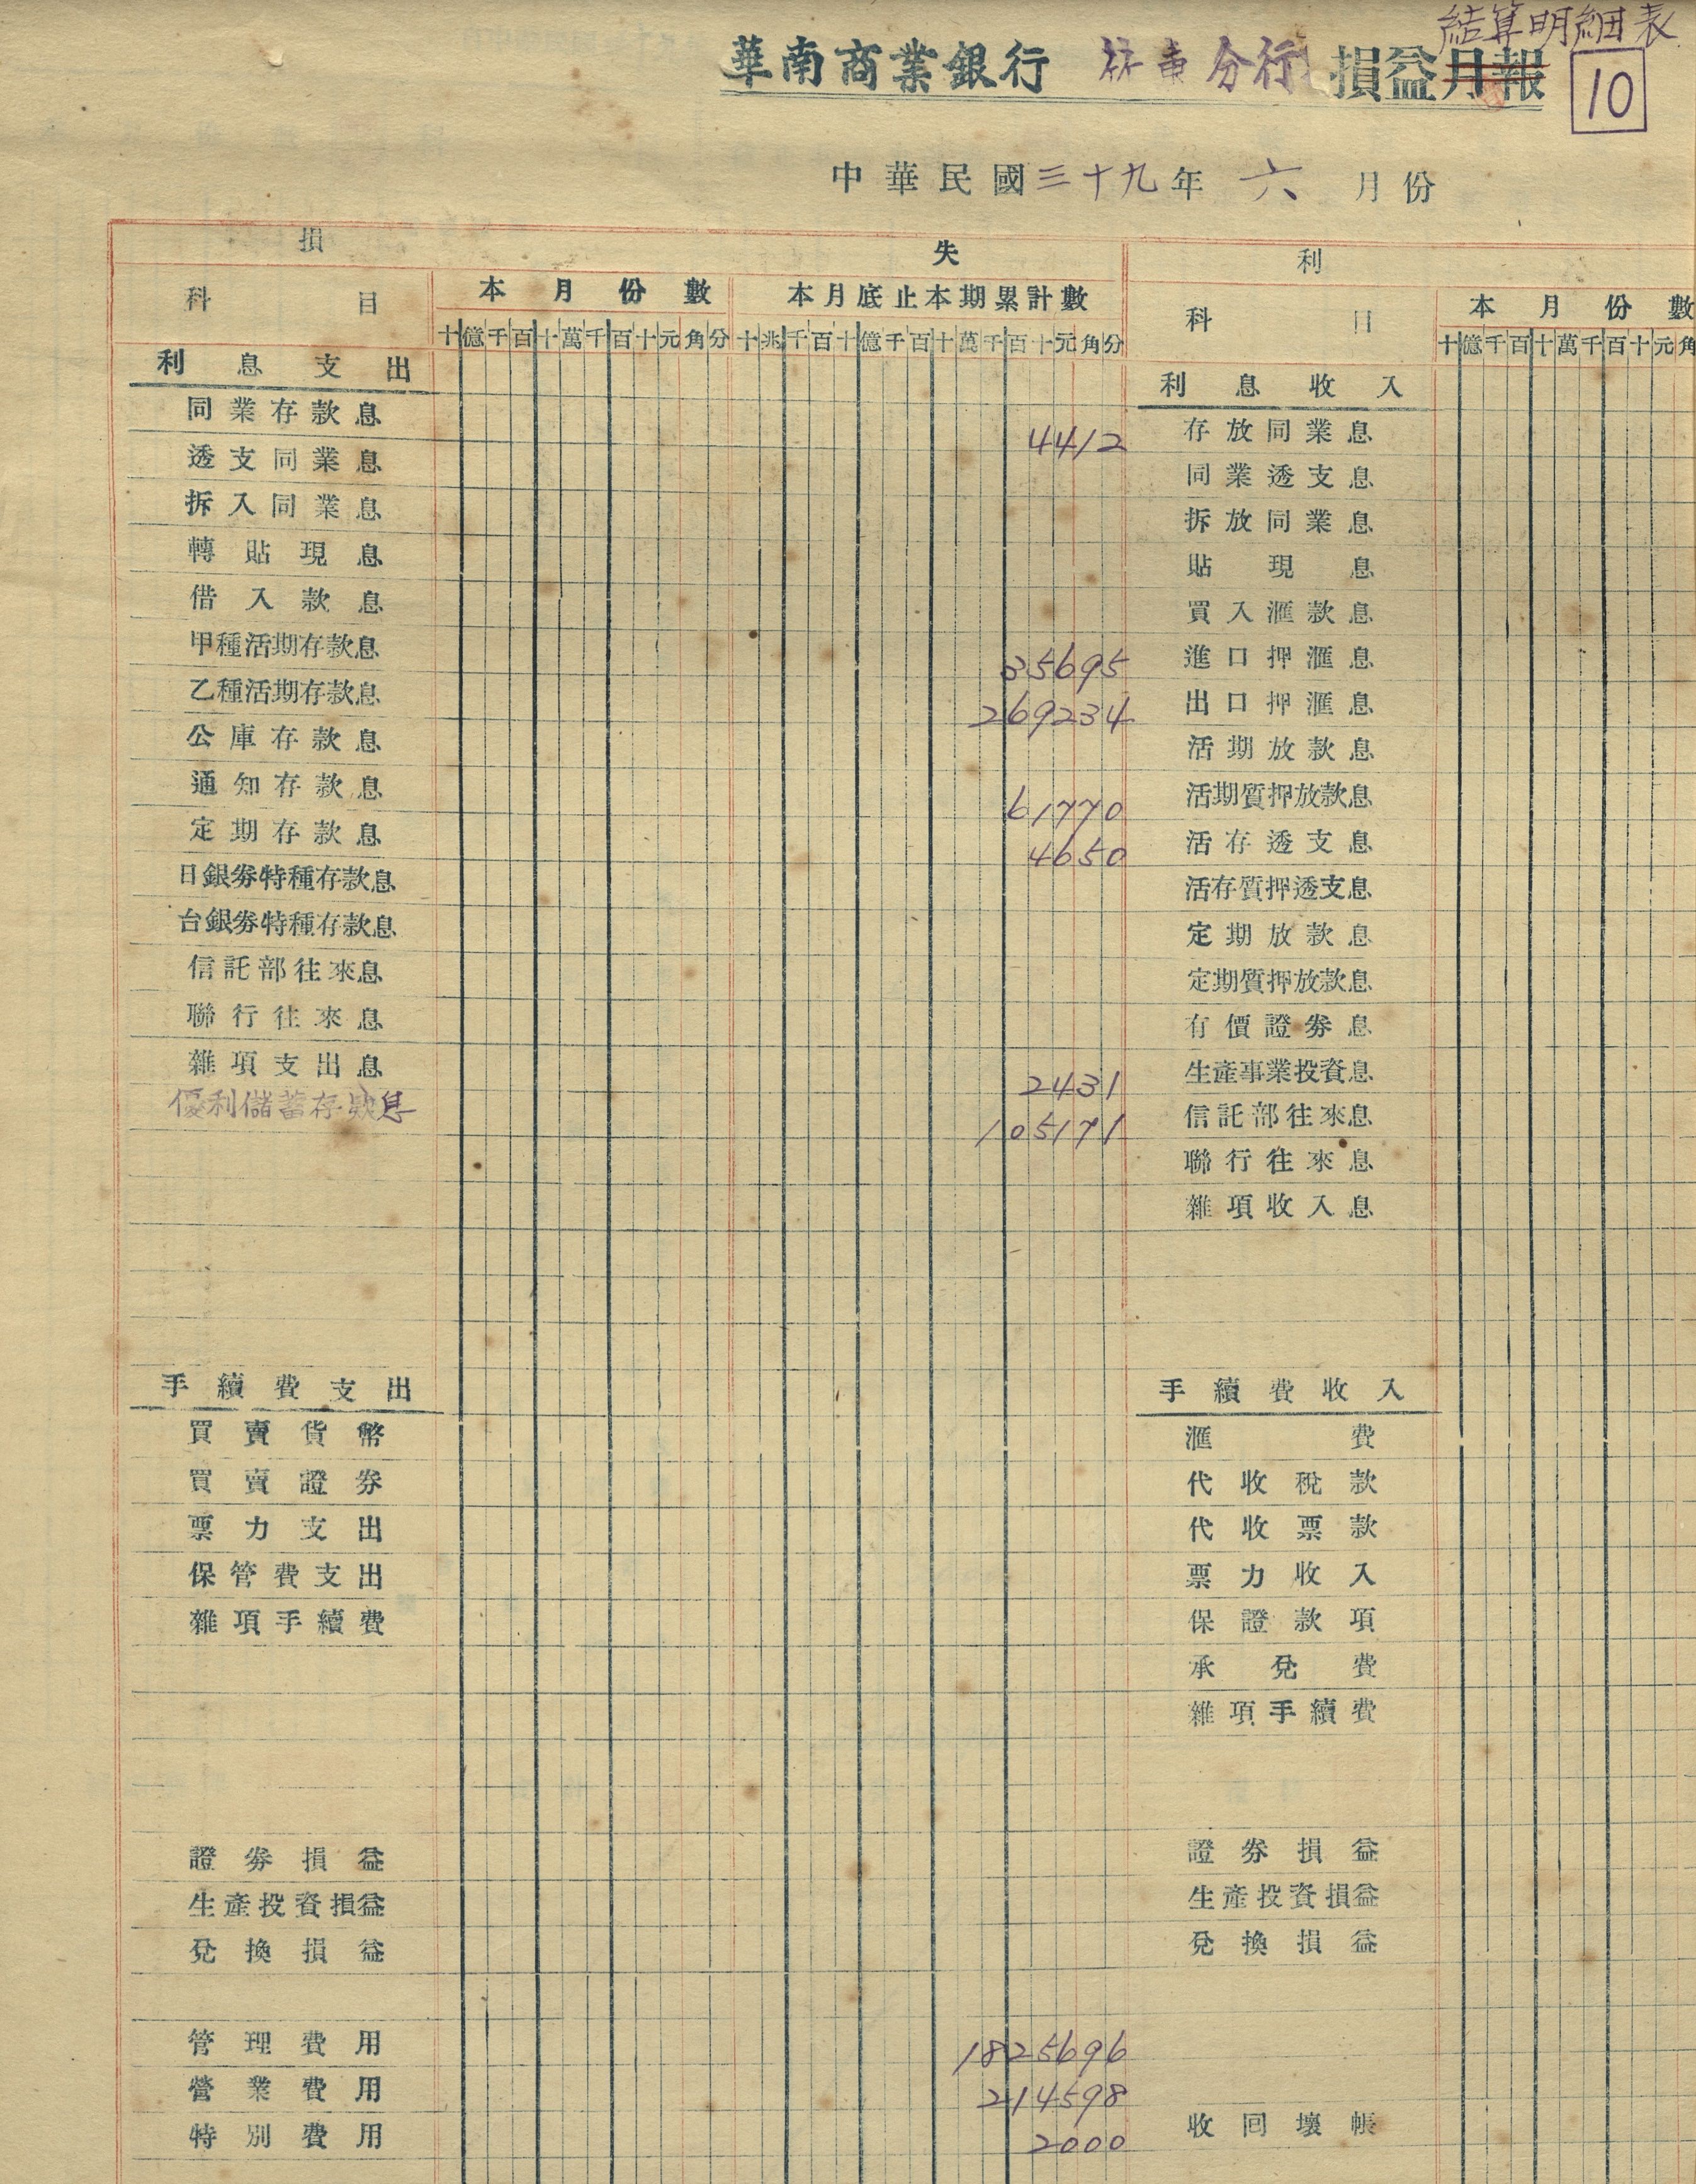 結算明細表
華南商業銀行 分行 損益月報 10
中華民國三十九年 六 月份
損 失 利
科目 本月份數 本月底止本期累計數 科目 本月份數
十億千百十萬千百十元角分 十兆千百十億千百十萬千百十元角分 十億千百十萬千百十元角
利息支出 利息收入
同業存款息 4412 存放同業息
透支同業息 同業透支息
拆入同業息 拆放同業息
轉貼現息 貼現息
借入款息 買入滙款息
甲種活期存款息 35695 進口押滙息
乙種活期存款息 269234 出口押滙息
公庫存款息 活期放款息
通知存款息 61770 活期質押放款息
定期存款息 4650 活存透支息
日銀券特種存款息 活存質押透支息
台銀券特種存款息 定期放款息
信託部往來息 定期質押放款息
聯行往來息 有價證券息
雜項支出息 2431 生產事業投資息
優利儲蓄存款息 105171 信託部往來息
聯行往來息
雜項收入息
手續費支出 手續費收入
買賣貨幣 滙費
買賣證券 代收稅款
票力支出 代收票款
保管費支出 票力收入
雜項手續費 保證款項
承兌費
雜項手續費
證券損益 證券損益
生產投資損益 生產投資損益
兌換損益 兌換損益
管理費用 1825696
營業費用 214598
特別費用 2000 收回壞帳